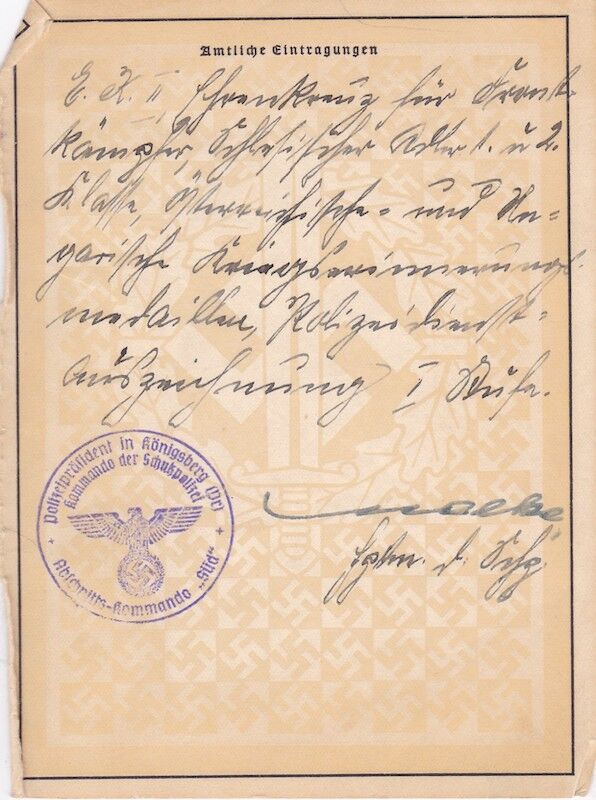 Amtliche Eintragungen
E. K. II, Ehrenkreuz für Front-
kämpfer, Schlesischer Adler 1. u 2.
Klasse, Österreichische- und Un-
garische Kriegserinnerungs-
medaillen, Polizeidienst-
auszeichnung I Stufe.
Polizeipräsident in Königsberg (Pr)
Kommando der Schutzpolizei
Abschnitts-Kommando „Süd"
Hptm. d. Schp.